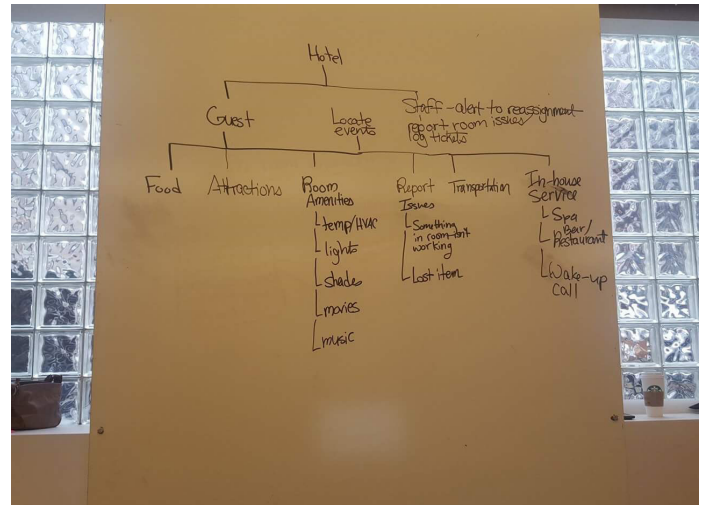 Hotel
Guest
Locate
events
Staff - alert to reassignment
report room issues/
log tickets
Food
Attractions
Room
Amenities
temp/HVAC
lights
shades
movies
music
Report
Issues
Something
in room isn't
working
Lost item
Transportation
In-house
Service
Spa
Bar/
Restaurant
Wake-up
call